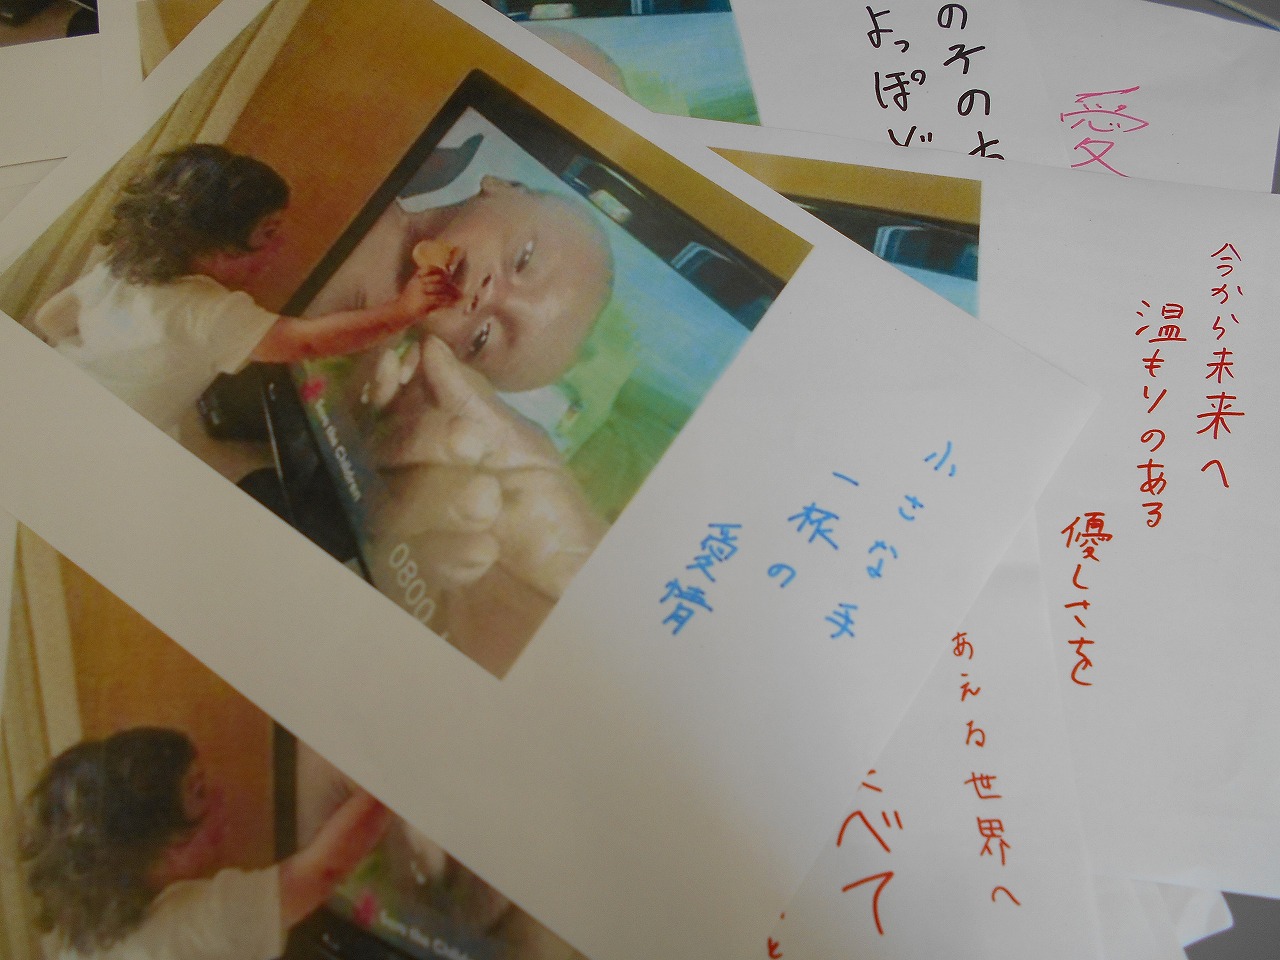 小さな手
一杯の
愛情
今から未来へ
温もりのある
優しさを
愛
のその
よっぽど
あえる世界へ
べて
と
Save the Children
0800
Save the Children